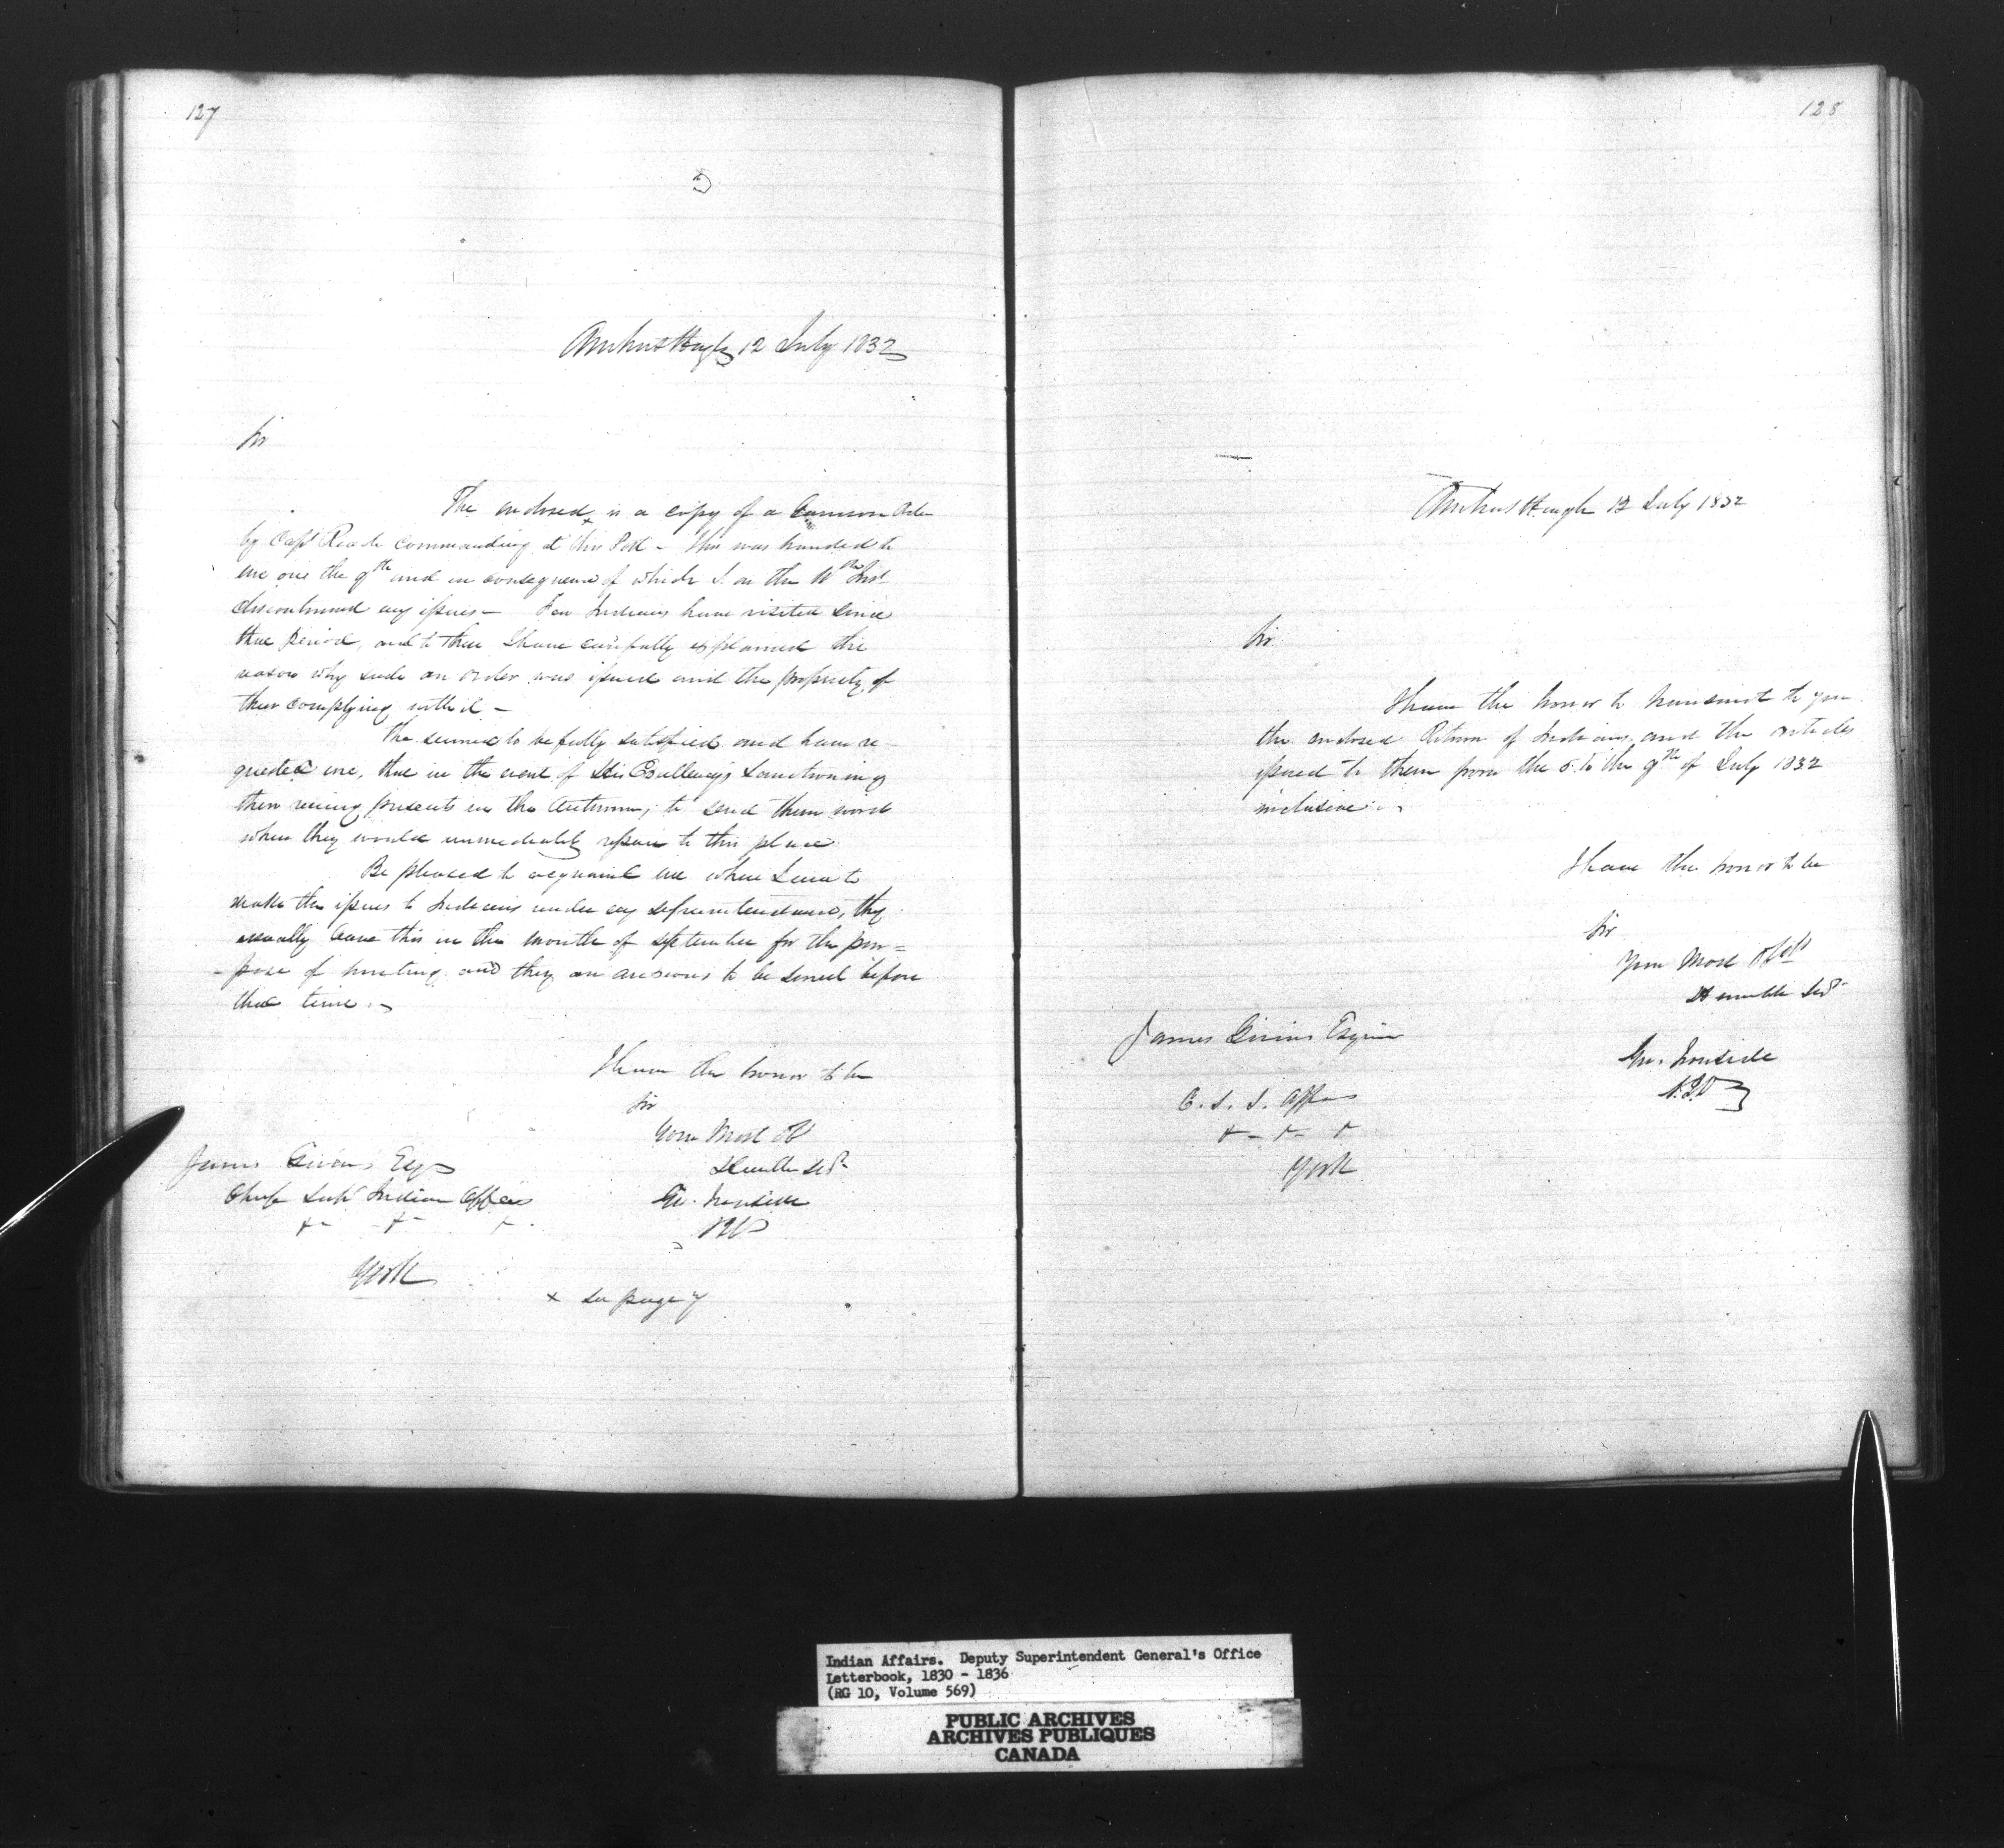 127
Amherstburgh 12 July 1832
Sir
The enclosed x is a copy of a Garrison Order
by Capt Reade Commanding at this Post - This was handed to
me one the 9th and in consequence of which I on the 10th Inst
discontinued my issues - Few Indians have visited since
that period, and to these I have carefully explained the
reason why such an order was issued and the propriety of
their complying with it -
The seemed to be fully satisfied and have re-
quested me, that in the event of His Excellency's Sanctioning
their receiving presents in the Autumn, to send them word
when they would immediately repair to this place
Be pleased to acquaint me when I am to
make the issues to Indians under my superintendance, they
usually leave this in the month of September for the pur=
-pose of hunting and they are anxious to be served before
that time. -
I have the honor to be
Sir
Your Most Ob
Humble Sert
James Givins Esqr
Chief Supt Indian Affairs
Geo. Ironside
York
x See page 7
128
Amherstburgh 12 July 1832
Sir
I have the honor to transmit to you
the enclosed Return of Indians, and the articles
issued to them from the 5 to the 9th of July 1832
inclusive. -
I have the honor to be
Sir
Your Most Obdt
Humble Sert
James Givins Esquire
Geo. Ironside
C. S. I. Affairs
York
Indian Affairs. Deputy Superintendent General's Office
Letterbook, 1830 - 1836
(RG 10, Volume 569)
PUBLIC ARCHIVES
ARCHIVES PUBLIQUES
CANADA